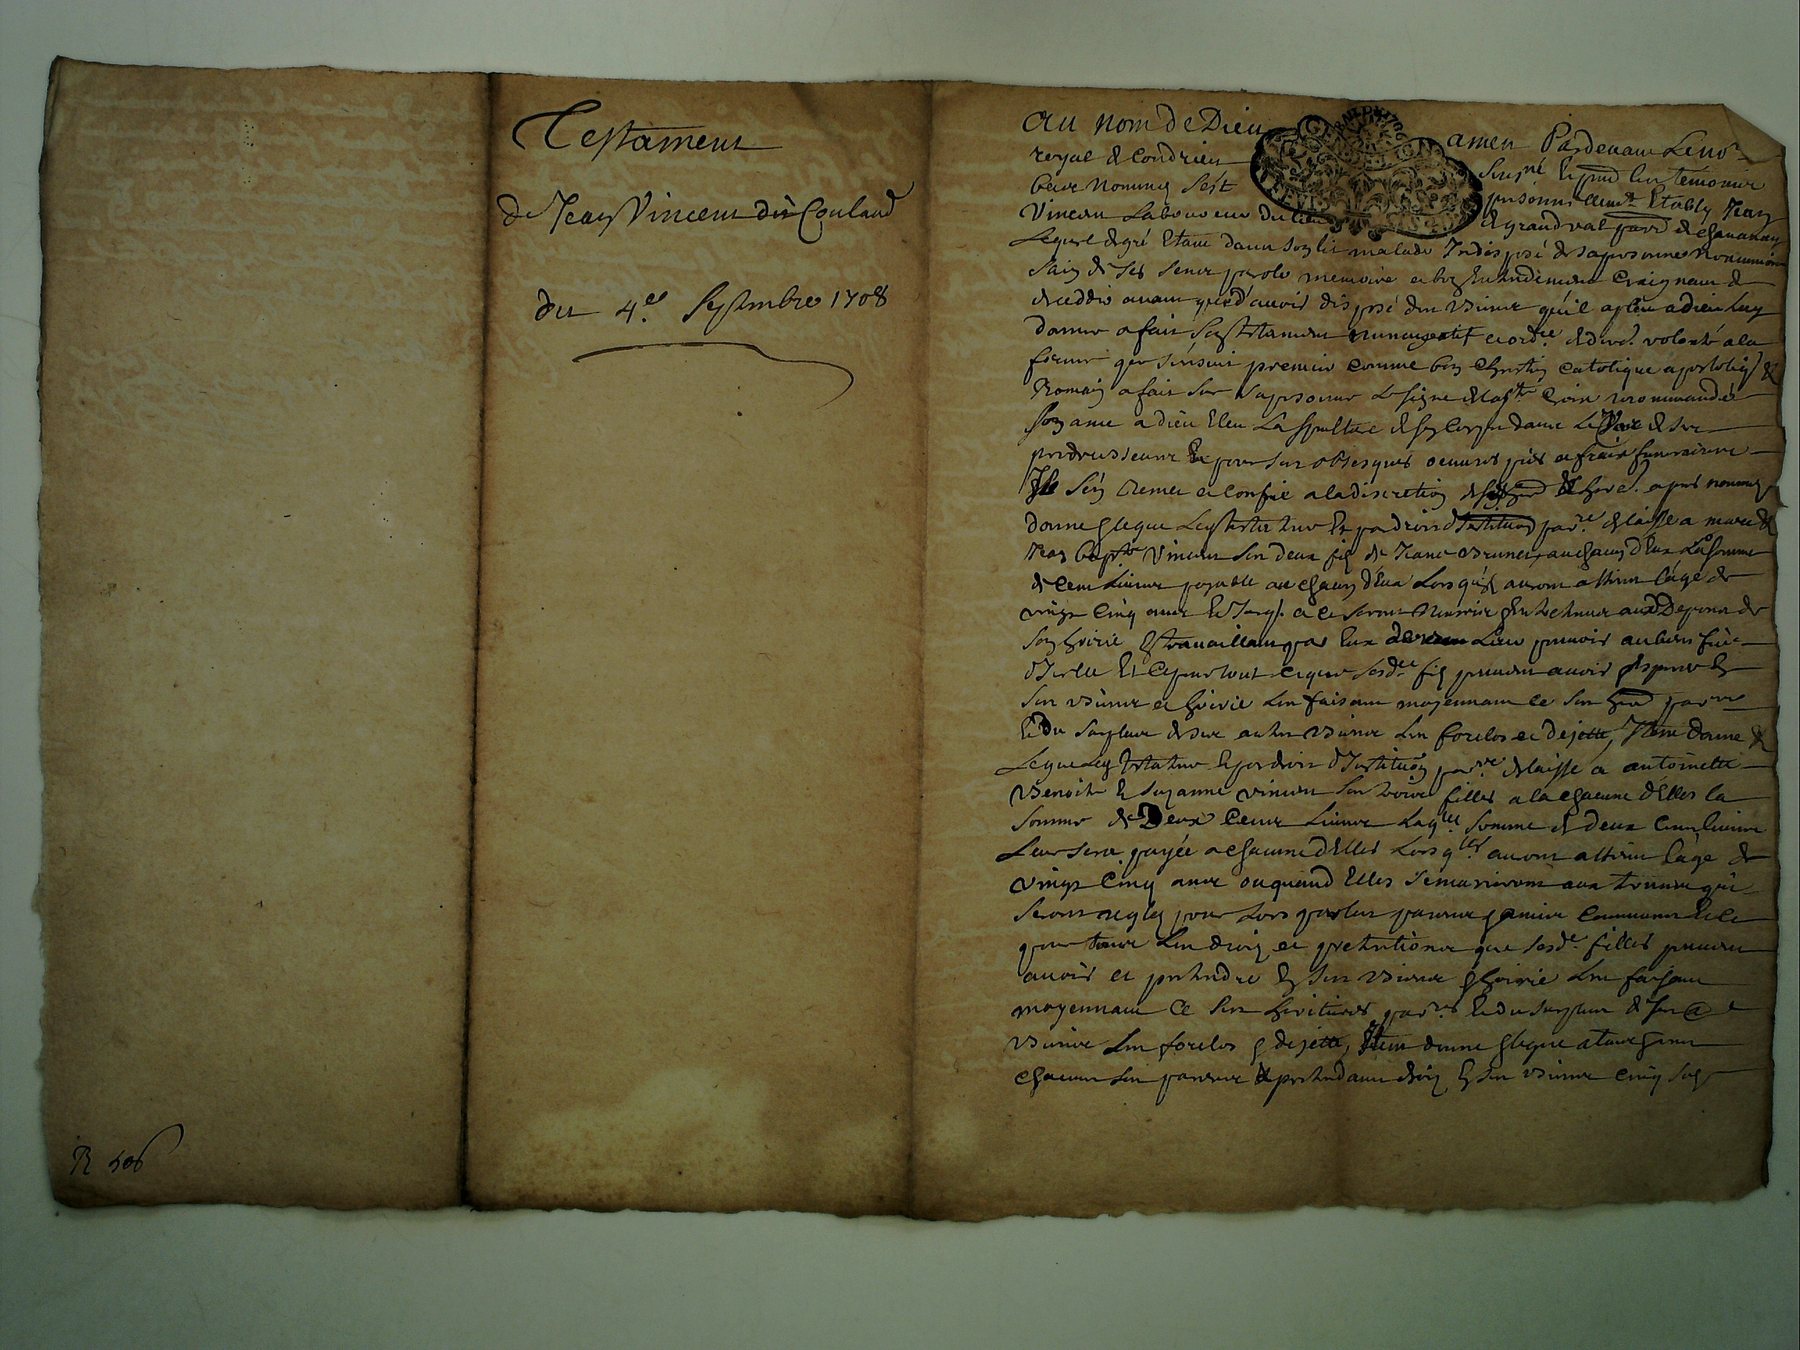 Testament
de Jean Vincent dit Coulaud
du 4.e Septembre 1708
R 506
Au nom de Dieu amen Pardevant le no.re
royal de Condrieu soussigné les témoins
bas nommés s'est personnellem.t Estably Jean
Vincent Laboureur du lieu de grandval par.e de chavanay
Lequel de gré Etant dans son lit malade Indisposé de sa personne
sain de ses sens parole memoire et bon Entendement Craignant de
deceddé avant que d'avoir disposé des biens qu'il a pleu a dieu luy
donner a fait son testament nuncupatif et ord.re de der.e volonté a la
forme que sensuit premier comme bon Chrestien Catolique apostoliq &
Romain a fait sur sa personne le signe de la s.te Croix recommandé
son ame a dieu Eleu la sepulture de son Corps dans le de ses
predecesseurs Et pour ses obseques oeuvres pies et frais funeraires
Il s'en remet et confie a la discretion de son her.e apres nommé
donne & legue Ledit testateur Et par droit d'Institution par.re delaisse a marc &
Jean bap.te Vincent ses deux fils de Jeane brunet a chacun d'Eux La somme
de Cent Livres payable a chacun d'Eux Lors qu'ils auront atteint l'age de
vingt Cinq ans Et Jusq. a ce seront Nourris & Entretenus aux Depens de
son hoirie & travaillant par Eux de leur pouvoir au bien fait
d'Icelle Et Ce pour tout ce que sesd. fils peuvent avoir & esperer En
ses biens et hoirie Les faisant moyennant ce ses her. par.res
Et du surplus de ses autres biens Les forclos et dejette, Item donne &
Legue Ledit testateur Et par droit d'Institution par.re delaisse a antoinette
Benoite & Suzanne Vincent ses trois filles a la chacune d'Elles la
somme de Deux Cents Livres Laq.lle somme de deux Cens livres
Leur sera payée a chacune d'Elles Lors q.lles auront atteint l'age de
vingt Cinq ans ou quand Elles se marieront aux termes qui
seront reglés pour lors par les parens & amis communs Et Ce
pour tous Les droits et pretentions que sesd. filles peuvent
avoir et pretendre En ses biens & hoirie Les faisant
moyennant Ce ses heritieres par.res Et du surplus de ses
biens Les forclos & dejette, Item donne & legue a tous
chacuns ses parens & pretendants droit En ses biens Cinq sols